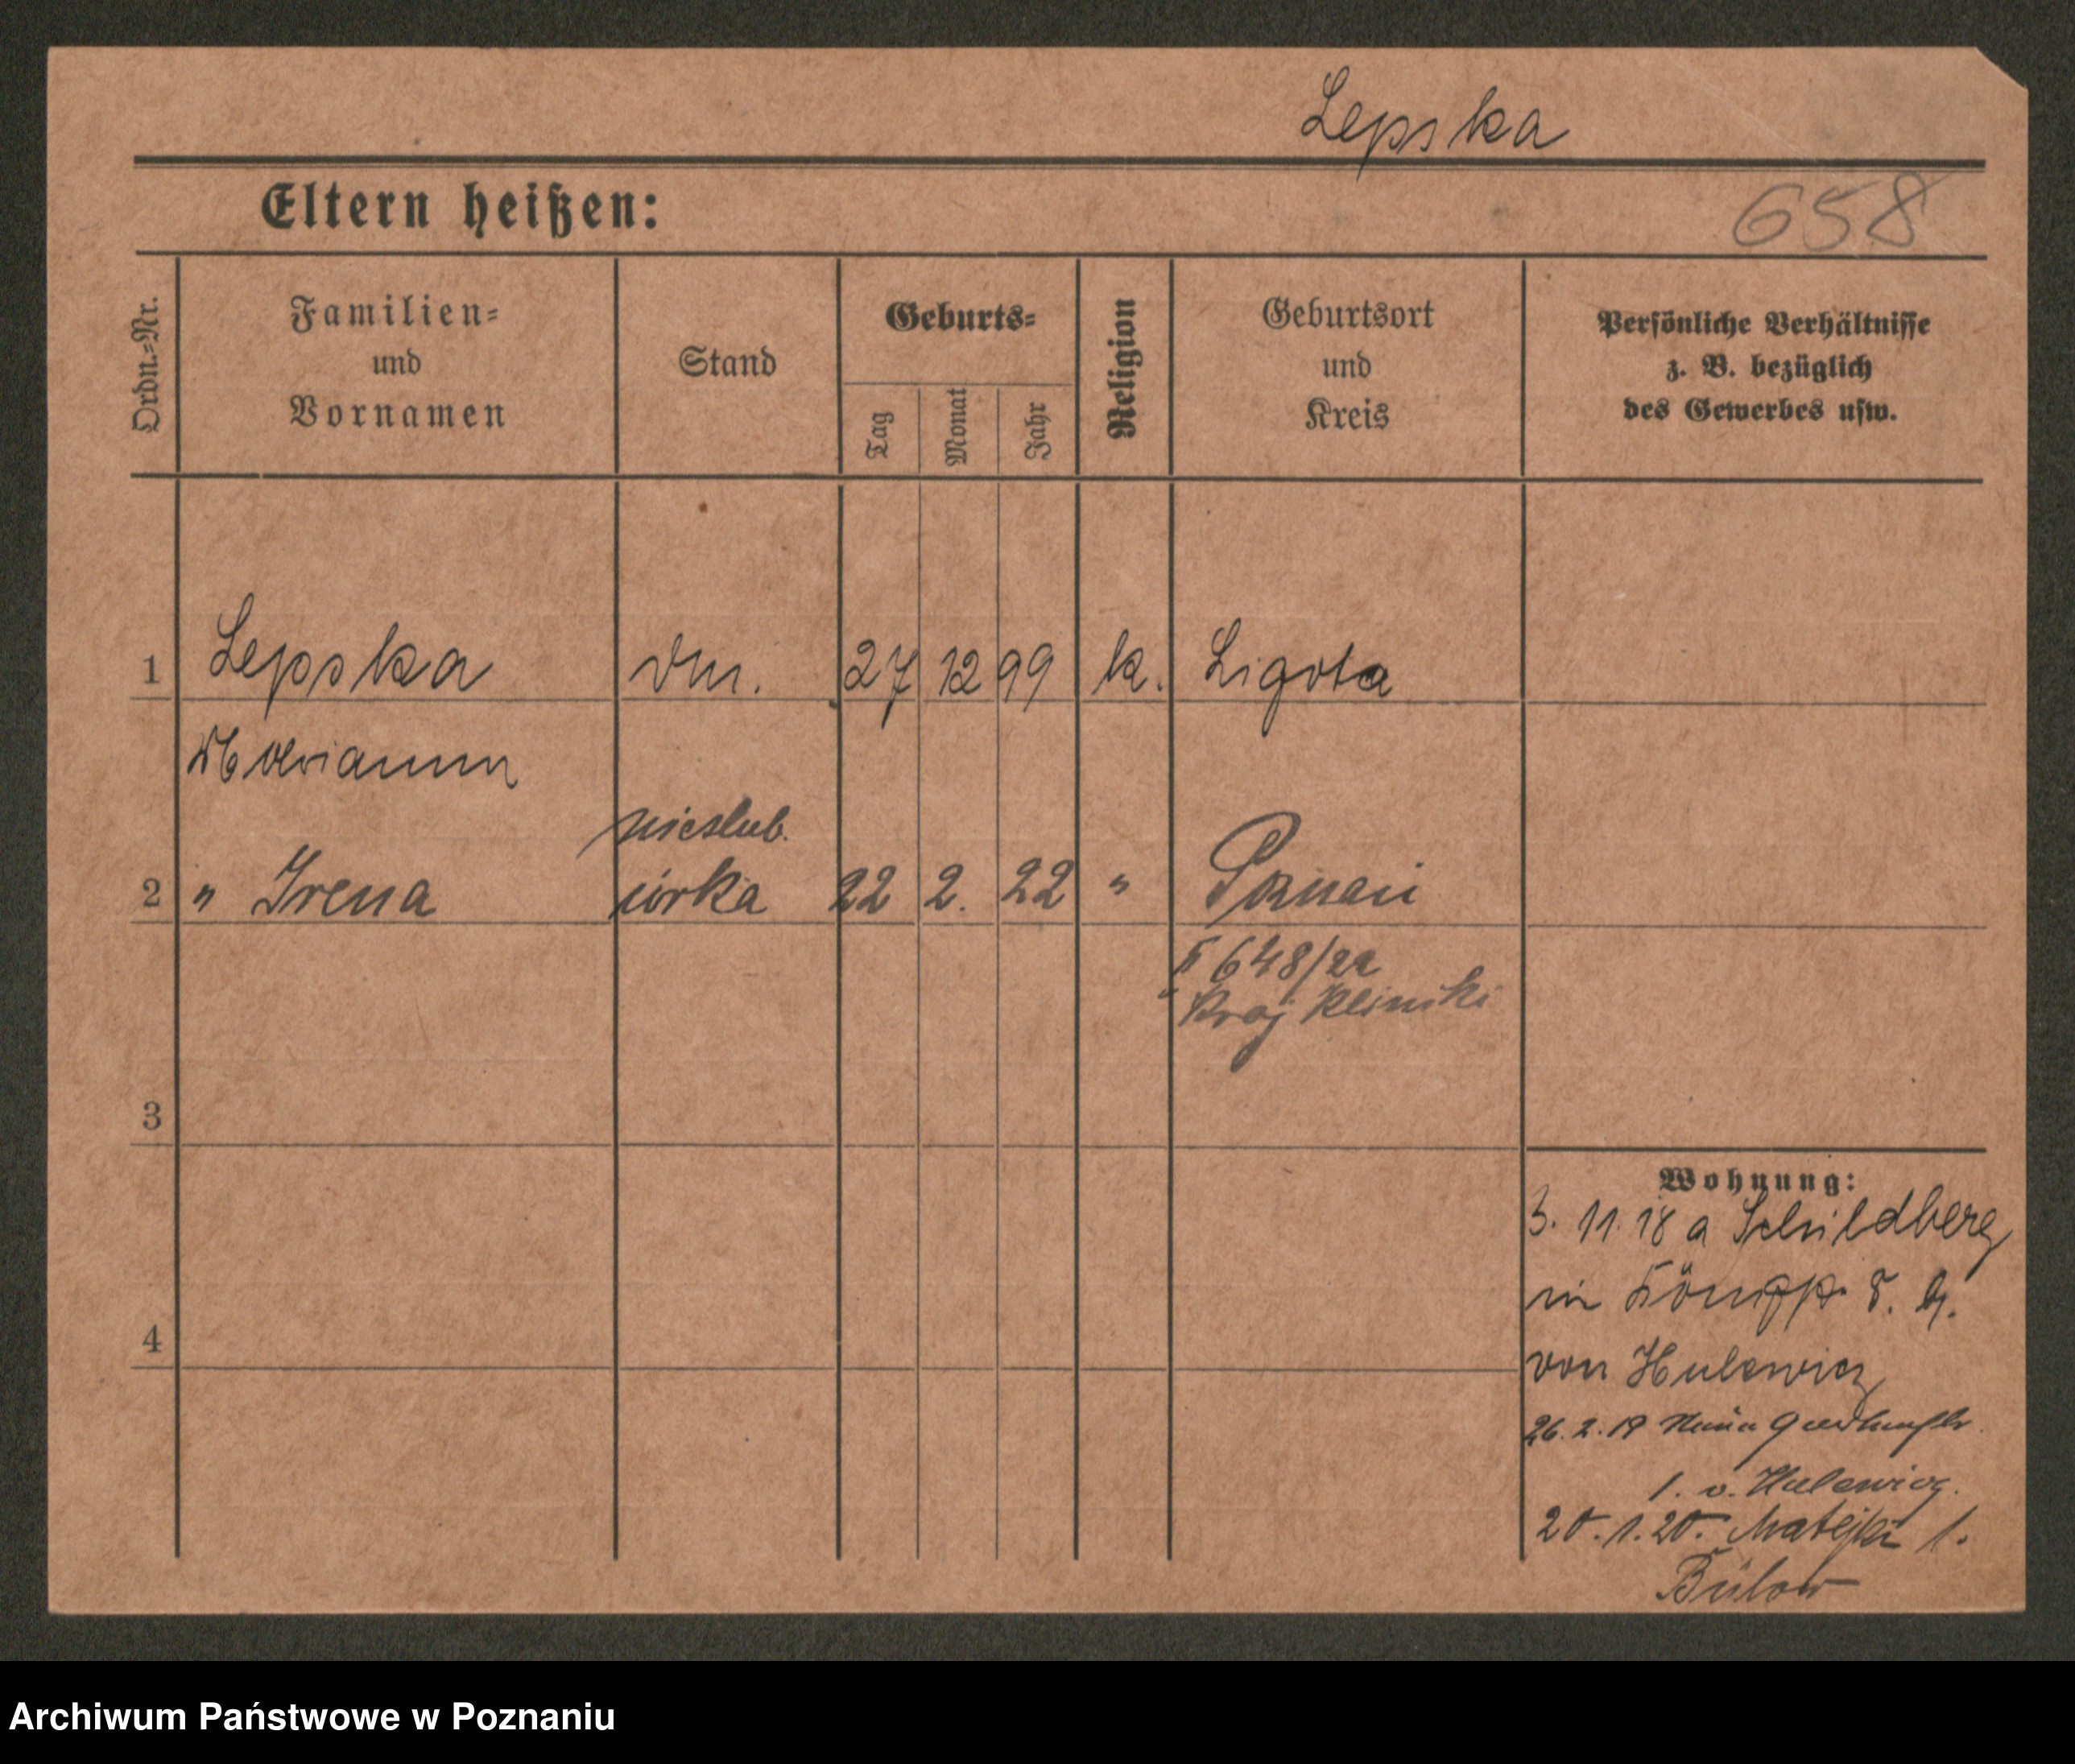 Lepska
Eltern heißen:
658
Ordn.-Nr.
Familien-
und
Vornamen
Stand
Geburts-
Tag
Monat
Jahr
Religion
Geburtsort
und
Kreis
Persönliche Verhältnisse
z. B. bezüglich
des Gewerbes usw.
1 Lepska 27 12 99 k. Ligota
Marianna
nieslub.
2 " Irena córka 22 2. 22 " Poznań
648/22
Kraj Klinski
3
Wohnung:
3. 11. 18 a Schildberg
in
4
von Hulewicz
26. 2. 19
1. v. Hulewicz.
20. 1. 20. Matejki 1.
Bülow
Archiwum Państwowe w Poznaniu